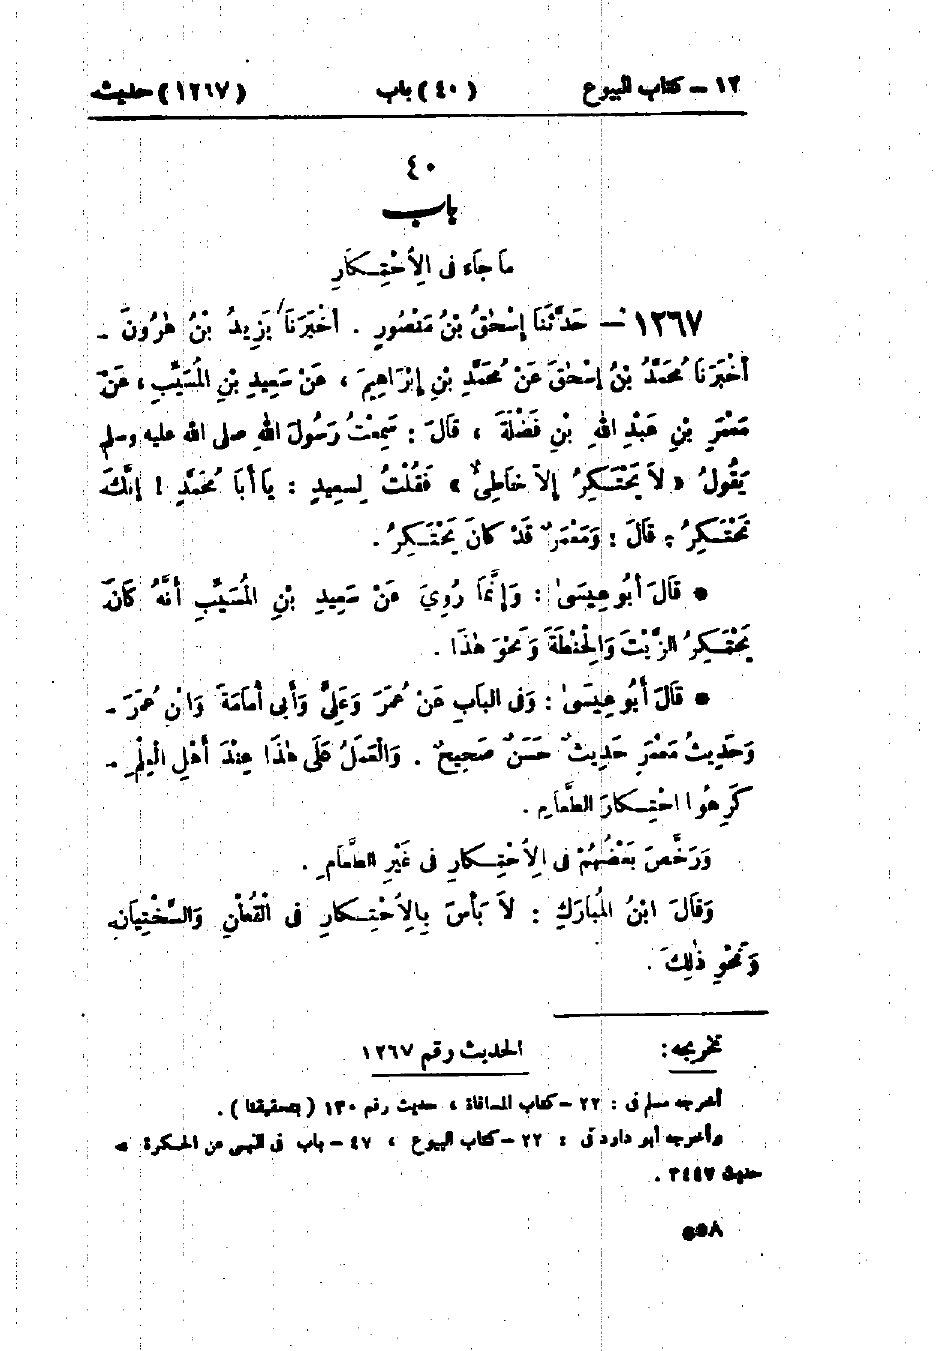 ١٢ – كتاب البيوع (٤٠) باب (١٢٦٧) حديث
٤٠
باب
مَا جَاءَ فى الِاحْتِكَارِ
١٢٦٧ – حَدَّثَنَا إِسْحٰقُ بْنُ مَنْصُورٍ . أَخْبَرَنَا يَزِيدُ بْنُ هٰرُونَ .
أَخْبَرَنَا مُحَمَّدُ بْنُ إِسْحٰقَ عَنْ مُحَمَّدِ بْنِ إِبْرَاهِيمَ ، عَنْ سَعِيدِ بْنِ الْمُسَيِّبِ ، عَنْ
مَعْمَرِ بْنِ عَبْدِ اللهِ بْنِ فَضْلَةَ ، قَالَ : سَمِعْتُ رَسُولَ اللهِ صلى الله عليه وسلم
يَقُولُ « لَا يَحْتَكِرُ إِلَّا خَاطِئٌ » فَقُلْتُ لِسعِيدٍ : يَا أَبَا مُحَمَّدٍ ! إِنَّكَ
تَحْتَكِرُ ؟ قَالَ : وَمَعْمَرٌ قَدْ كَانَ يَحْتَكِرُ .
● قَالَ أَبُو عِيسَىٰ : وَإِنَّمَا رُوِيَ عَنْ سَعِيدِ بْنِ الْمُسَيِّبِ أَنَّهُ كَانَ
يَحْتَكِرُ الزَّيْتَ وَالْحِنْطَةَ وَنَحْوَ هٰذَا .
● قَالَ أَبُو عِيسَىٰ : وَفى الْبَابِ عَنْ عُمَرَ وَعَلِيٍّ وَأَبِى أُمَامَةَ وَابْنِ عُمَرَ .
وَحَدِيثُ مَعْمَرٍ حَدِيثٌ حَسَنٌ صَحِيحٌ . وَالْعَمَلُ عَلَى هٰذَا عِنْدَ أَهْلِ الْعِلْمِ .
كَرِهُوا احْتِكَارَ الطَّعَامِ .
وَرَخَّصَ بَعْضُهُمْ فى الِاحْتِكَارِ فى غَيْرِ الطَّعَامِ .
وَقَالَ ابْنُ الْمُبَارَكِ : لَا بَأْسَ بِالِاحْتِكَارِ فى الْقُطْنِ وَالسَّخْتِيَانِ
وَنَحْوِ ذٰلِكَ .
تخريجه : الحديث رقم ١٢٦٧
أخرجه مسلم فى : ٢٢ – كتاب المساقاة ، حديث رقم ١٣٠ ( بتحقيقنا ) .
وأخرجه أبو داود فى : ٢٢ – كتاب البيوع ، ٤٧ – باب فى النهى عن الحكرة ،
حديث ٣٤٤٧ .
٥٥٨